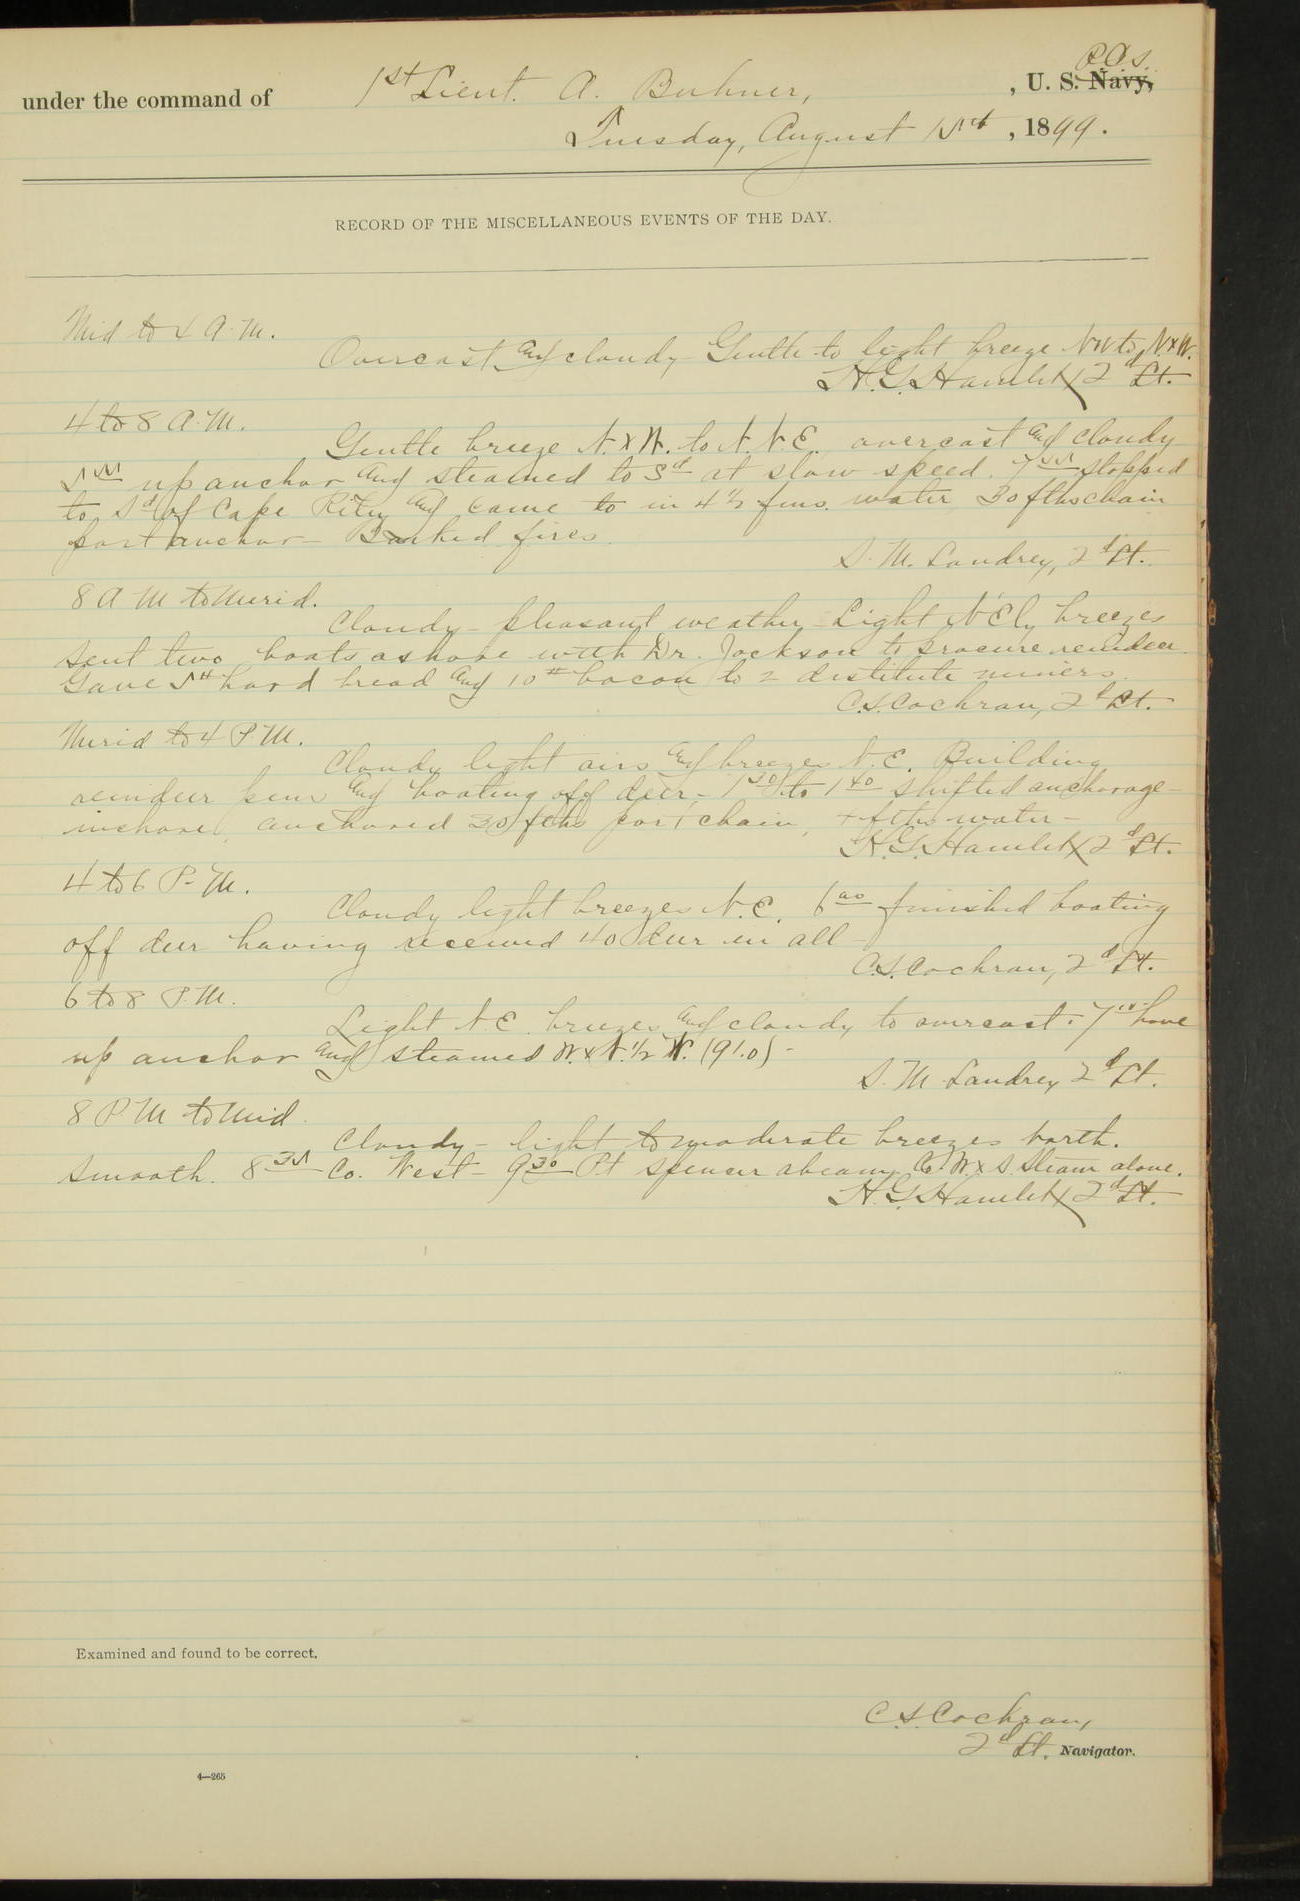 R.C.S.
under the command of 1st Lieut. A. Buhner, , U. S. Navy,
Tuesday, August 15th , 1899.
RECORD OF THE MISCELLANEOUS EVENTS OF THE DAY.
Mid to 4 A.M.
Overcast and cloudy Gentle to light breeze NW to NxW.
H.G. Hamlet 2d Lt.
4 to 8 A.M.
Gentle breeze N.xW. to N.N.E. overcast and cloudy
up anchor and steamed to Sd at slow speed. stopped
to Sd of Cape and came to in 4½ fms. water 30 fths chain
port anchor - Banked fires.
S. M. Landrey, 2d Lt.
8 A M to Merid.
Cloudy - pleasant weather - Light NEly breezes
Sent two boats ashore with Dr. Jackson to procure reindeer.
Gave 5# hard bread and 10# bacon to 2 destitute miners.
C.S. Cochran, 2d Lt.
Merid to 4 P M.
Cloudy light airs and breezes N.E. Building
reindeer pens and boating off deer, - 1 30 to 1 40 shifted anchorage -
inshore, anchored 30 fths port chain, 4 fths water -
H.G. Hamlet 2d Lt.
4 to 6 P.M.
Cloudy light breezes N.E. 6 00 finished boating
off deer having received 40 deer in all -
C.S. Cochran, 2d Lt.
6 to 8 P.M.
Light N E. breezes and cloudy to overcast. hove
up anchor and steamed W.xN.½ W. (91.0) -
S. M. Landrey 2d Lt.
8 P.M to Mid
Cloudy - light to moderate breezes North.
Smooth. 8 35 Co. West - 9 30 Pt Spencer abeam Co. W.x S. Steam alone.
H.G. Hamlet 2d Lt.
Examined and found to be correct.
C S. Cochran,
2d Lt. Navigator.
4—265